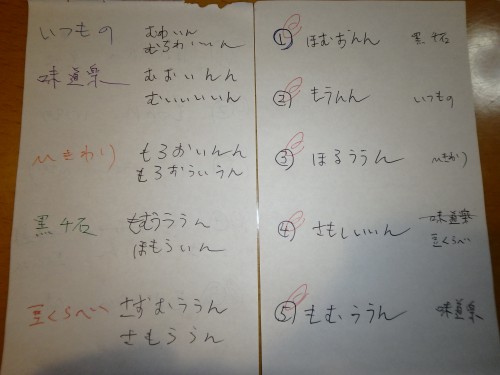 いつもの
むわいん
むろわいいん
味道楽
むおいんん
むいいいいん
ひきわり
もろおいんん
もろおういうん
黒千石
もむうううん
ほもういん
豆くらべ
さずむううん
さもううん
① ほむおんん 黒千石
② もうんん いつもの
③ ほるううん ひきわり
④ さもしいいん 味道楽
豆くらべ
⑤ もむううん 味道楽